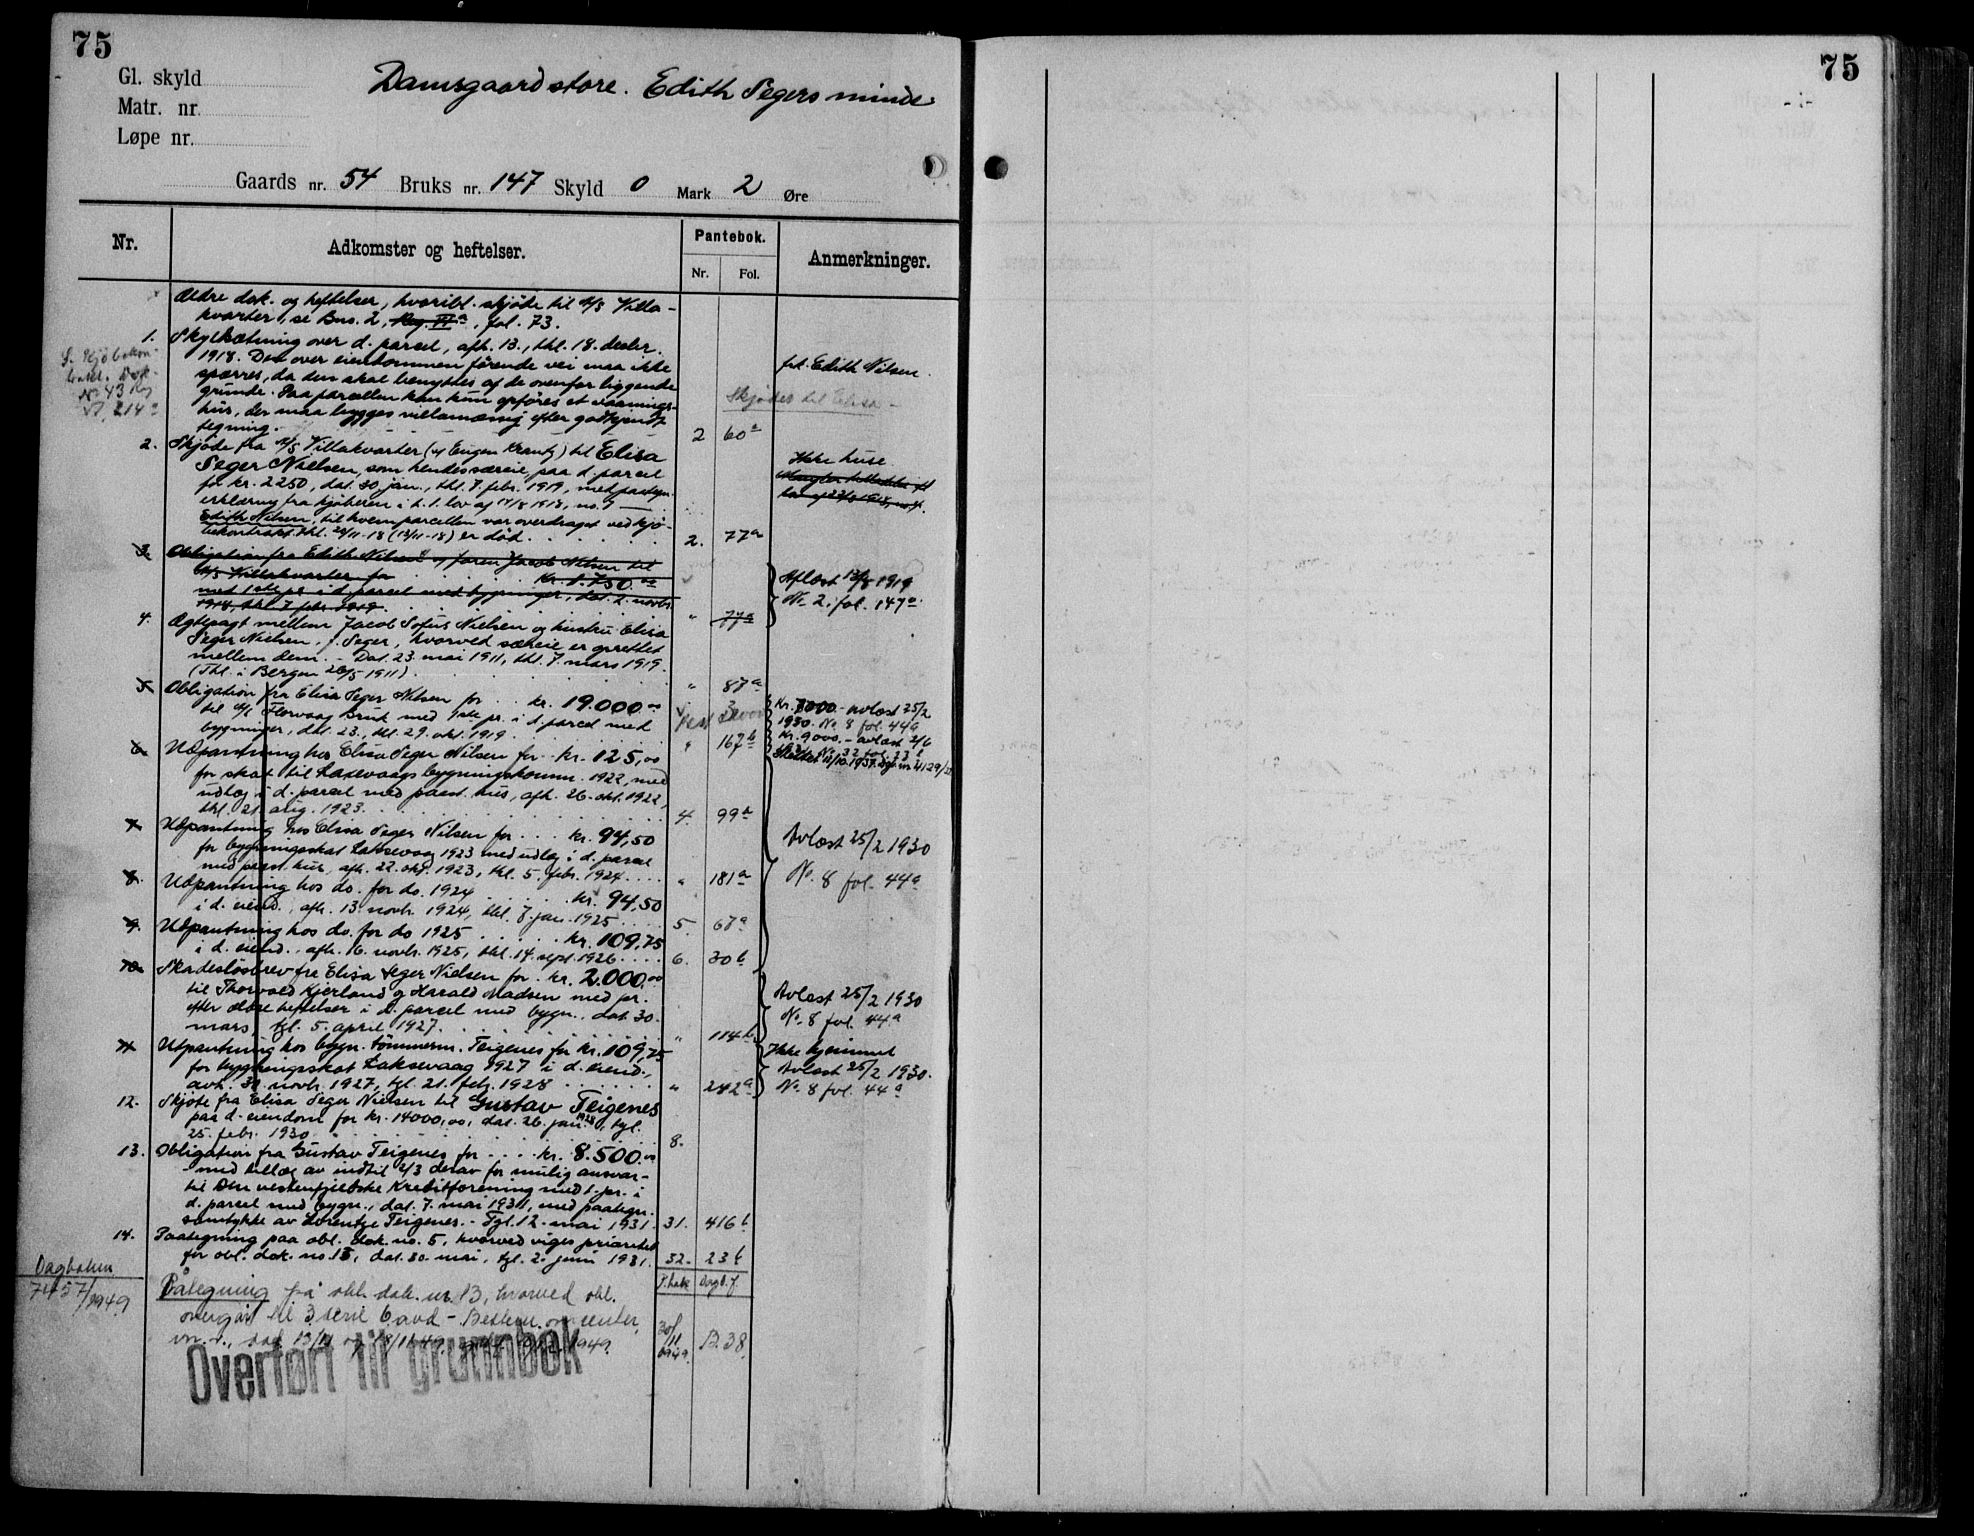 75
Gl. skyld
Matr. nr.
Løpe nr.
Damsgaard store. Edith Segers minde
Gaards nr. 54 Bruks nr. 147 Skyld 0 Mark 2 Øre
Nr.
Adkomster og heftelser.
Pantebok.
Nr. Fol.
Anmerkninger.
Ældre dok. og heftelser, hvoribl. skjøde til A/S Villa-
kvarter, se Bus. 2, Reg. VI a, fol. 73.
1. Skyldsætning over d. parcel, afh. 13., thl. 18. decbr.
1918. Den over eiendommen førende vei maa ikke
spærres, da den skal benyttes af de ovenfor liggende
grunde. Paa parcellen kan kun opføres et vaanings-
hus, der maa bygges villamæssig efter godkjendt
tegning. 2 60a
No 43
VI, 214a
frk. Edith Nilsen.
Skjødes til Elisa -
2. Skjøde fra A/S Villakvarter (v/ Eugen Krantz) til Elisa
Seger Nielsen, som hendes særeie paa d. parcel
for kr. 2250, dat. 30 jan., thl. 7. febr. 1919, med paategn.
erklæring fra kjøberen i h. t. lov af 14/8 1918, no. 7
Edith Nilsen, til hvem parcellen var overdraget ved kjø-
bekontrakt thl. 20/11-18 (13/11-18) er død. 2. 77a
Ikke huse
3. Obligation fra Edith Nilsen og faren Jacob Nilsen til
A/S Villakvarter for kr. 1.750.00
med 1ste pr. i d. parcel med bygninger, dat. 2. novbr.
1918, thl. 7 febr. 1919. " 77a
Aflæst 13/8 1919
No 2, fol. 147a.
4. Ægtepagt mellem Jacob Sofus Nielsen og hustru Elisa
Seger Nielsen, f. Seger, hvorved særeie er oprettet
mellem dem. - Dat. 23. mai 1911, thl. 7. mars 1919.
(Thl. i Bergen 26/5 1911) " 87a
5. Obligation fra Elisa Seger Nilsen for kr. 19.000.00
til A/S Florvaag Bruk med 1ste pr. i d. parcel med
bygninger, dat. 23., thl. 29. okt. 1919. " 167b
Kr. 7000.- avlæst 25/2
1930. No 8 fol. 44a
Kr. 9000.- avlæst 2/6
1931. No. 32 fol. 23b
Slettet 11/10.1937. Dgb. nr. 4129/37
6. Utpantning hos Elisa Seger Nilsen for kr. 125,00
for skat til Laksevaags bygningskomm. 1922, med
utlæg i d. parcel med paast. hus, afh. 26. okt. 1922,
thl. 21. aug. 1923. 4. 99a
7. Utpantning hos Elisa Seger Nilsen for kr. 94,50
for bygningsskat Laksevaag 1923 med utlæg i d. parcel
med paast. hus, afh. 22. okt. 1923, thl. 5. febr. 1924. " 181a
Avlæst 25/2 1930
No. 8 fol. 44a
8. Utpantning hos do. for do. 1924 kr. 94,50
i d. eiend., afh. 13. novbr. 1924, thl. 7. jan. 1925 5. 67a
9. Utpantning hos do. for do 1925 kr. 109,75
i d. eiend., afh. 16. novbr. 1925, thl. 14. sept. 1926. 6. 30b
10. Skadesløsbrev fra Elisa Seger Nielsen for kr. 2.000,00
til Thorvald Kjerland og Harald Madsen med pr.
efter ældre heftelser i d. parcel med bygn., dat. 30.
mars, tgl. 5. april 1927. " 114b
Avlæst 25/2 1930
No 8 fol. 44a
11. Utpantning hos bygn. tømmerm. Teigenes for kr. 109,75
for bygningsskat Laksevaag 1927 i d. eiend.,
avh. 30. novbr. 1927, tgl. 21. febr. 1928 " 242a
Ikke hjemmel
Avlæst 25/2 1930.
No 8 fol. 44a
12. Skjøte fra Elisa Seger Nielsen til Gustav Teigenes
paa d. eiendom for kr. 14000,00, dat. 26. jan. 1928, tgl.
25. febr. 1930 8.
13. Obligation fra Gustav Teigenes for kr. 8.500.00
med tillæg av indtil 2/3 derav for mulig ansvar-
til Den vestenfjeldske Kreditforening med 1. pr. i
d. parcel med bygn., dat. 7. mai 1931, med paategn.
samtykke av Lorentze Teigenes. - Tgl. 12. mai 1931. 31. 416b
14. Paategning paa obl. dok. no. 5, hvorved viges prioritet
for obl. dok. no. 13, dat. 30. mai, tgl. 2. juni 1931. 32. 23b
Dagboken
7457/1949
Dagb. f.
Påtegning på obl. dok. nr. 13, hvorved obl.
overgår til 3 serie 6 avd - Bestem. om renter
1949.
30/11 1949. B. 38.
Overført til grunnbok
75